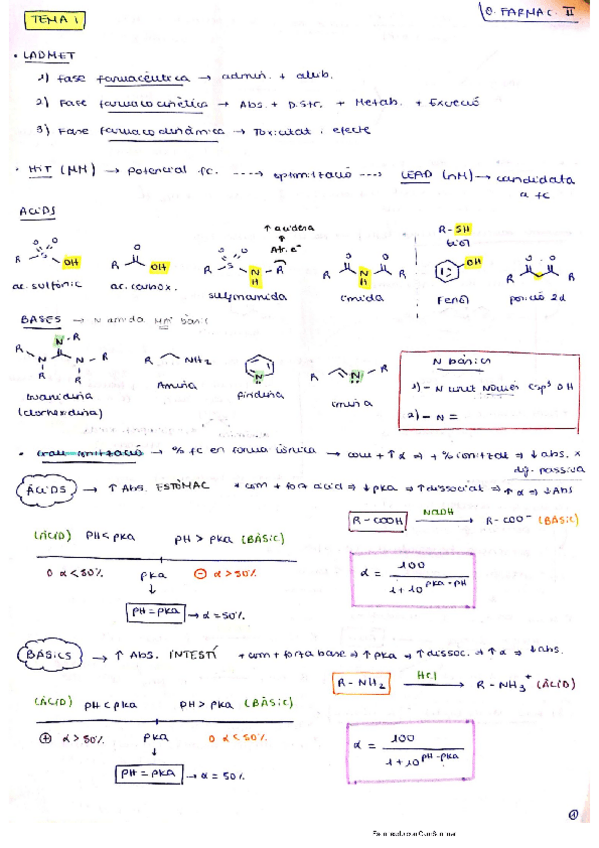 TEMA 1
Q. FARMAC. II
• LADMET
1) Fase farmacèutica → admin. + allib.
2) Fase farmacocinètica → Abs. + Distr. + Metab. + Excreció
3) Fase farmacodinàmica → Toxicitat, efecte
• HIT (µM) → potencial fc. ----→ optimització ---→ LEAD (nM) → candidata a fc
ÀCIDS
↑ acidesa
↑
Atr. e⁻
R S O O OH
R O OH
R S O O N H R
R O N H O R
R-SH
tiol
OH
R O O R
ac. sulfònic
ac. carbox.
sulfonamida
imida
Fenol
posició 2d
BASES → N amida
R N N-R N R R R
R NH₂
N
R N R
Guanidina
(clorhexidina)
Amina
Piridina
imina
N bàsics
1) - N unit només Csp³ o H
2) - N =
• Grau ionització → % fc en forma iònica → com + ↑ α ⇒ + % ionitzat ⇒ ↓ abs. x
dif. passiva
ÀCIDS → ↑ Abs. ESTÓMAC * com + fort àcid ⇒ ↓ pKa ⇒ ↑ dissociat ⇒ ↑ α ⇒ ↓ Abs
R-COOH NaOH → R-COO⁻ (BÀSIC)
(ÀCID) pH < pKa pH > pKa (BÀSIC)
0 α < 50% pKa ⊖ α > 50%
↓
pH = pKa → α = 50%
α = 100 / 1 + 10^(pKa - pH)
BÀSICS → ↑ Abs. INTESTÍ * com + forta base ⇒ ↑ pKa ⇒ ↑ dissoc. ⇒ ↑ α ⇒ ↓ abs.
R-NH₂ HCl → R-NH₃⁺ (ÀCID)
(ÀCID) pH < pKa pH > pKa (BÀSIC)
⊕ α > 50% pKa 0 α < 50%
↓
pH = pKa → α = 50%
α = 100 / 1 + 10^(pH - pKa)
1